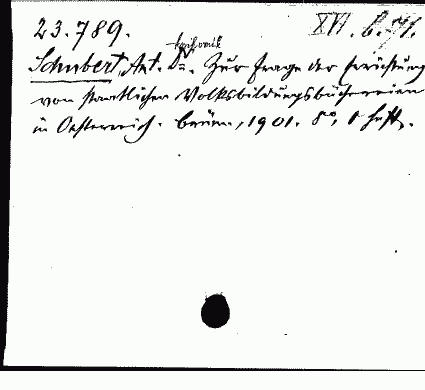 23.789. XVI. b. 71.
Schubert, Ant. Dr. Zur Frage der Errichtung
von staatlichen Volksbildungsbüchereien
in Oesterreich. Brünn, 1901. 8°, 1 Heft.